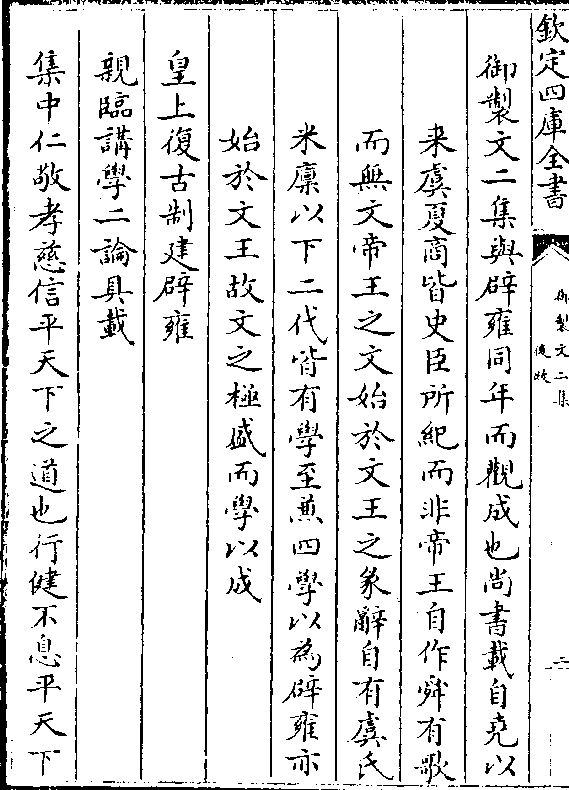 欽定四庫全書
御製文二集
後跋
二
御製文二集與辟雍同年而觀成也尚書載自堯以
来虞夏商皆史臣所紀而非帝王自作舜有歌
而無文帝王之文始於文王之彖辭自有虞氏
米廩以下二代皆有學至兼四學以為辟雍亦
始於文王故文之極盛而學以成
皇上復古制建辟雍
親臨講學二論具載
集中仁敬孝慈信平天下之道也行健不息平天下